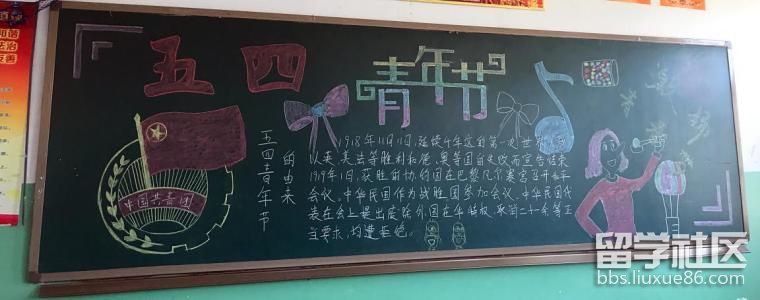 和谐
法治
友善
五四
青年节
五四青年节
的由来
1918年11月11日,延续4年之久的第一次世界
以英、美、法等胜利和德、奥等国的失败而宣告结束
1919年1月,获胜的协约国在巴黎凡尔赛宫召开和平
会议。中华民国作为战胜国参加会议。中华民国代
表在会上提出废除外国在华特权,取消二十一条等正
要求,均遭拒绝。
中国共青团
留学社区
bbs.liuxue86.com